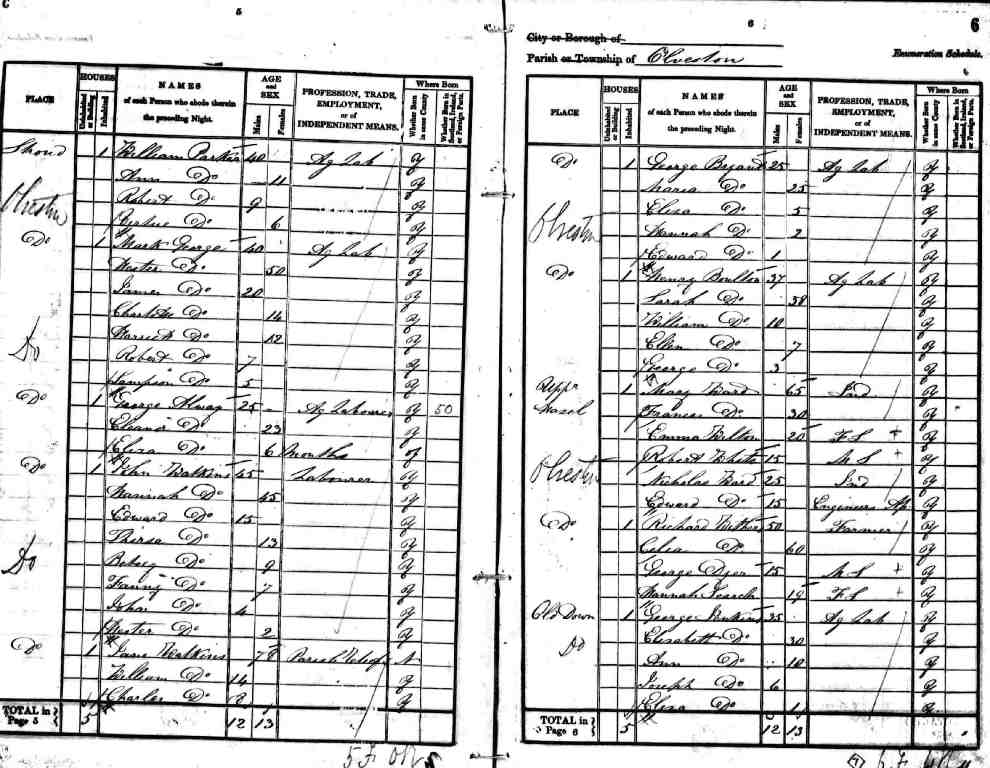 5
PLACE HOUSES Uninhabited or Building Inhabited NAMES of each Person who abode therein the preceding Night. AGE and SEX Males Females PROFESSION, TRADE, EMPLOYMENT, or of INDEPENDENT MEANS. Where Born Whether Born in same County Whether Born in Scotland, Ireland, or Foreign Parts.
1 William Parker 40 Ag Lab y
Ann Do 11 y
Robert Do 9 y
Olveston Do 6 y
Do 1 Mark George 40 Ag Lab y
Hester Do 50 y
James Do 20 y
Charlotte Do 14 y
Harriett Do 12 y
Do Robert Do 7 y
Sampson Do 5 y
Do 1 George Alway 25 Ag Labourer y 50
Eleanor Do 23 y
Eliza Do 6 Months y
Do 1 John Watkins 45 Labourer y
Hannah Do 45 y
Edward Do 15 y
Thirza Do 13 y
Do Betsey Do 9 y
Fanny Do 7 y
John Do 4 y
Hester Do 2 y
Do 1 Jane Watkins 78 Parish Relief N
William Do 14 y
Charles Do 8 y
TOTAL in Page 5 5 12 13
6
6
City or Borough of
Parish or Township of Olveston
Enumeration Schedule.
PLACE HOUSES Uninhabited or Building Inhabited NAMES of each Person who abode therein the preceding Night. AGE and SEX Males Females PROFESSION, TRADE, EMPLOYMENT, or of INDEPENDENT MEANS. Where Born Whether Born in same County Whether Born in Scotland, Ireland, or Foreign Parts.
Do 1 George Bryant 25 Ag Lab y
Maria Do 25 y
Eliza Do 5 y
Olveston Hannah Do 2 y
Edward Do 1 y
Do 1 Henry Boulton 37 Ag Lab y
Sarah Do 38 y
William Do 10 y
Ellen Do 7 y
George Do 3 y
Uppr 1 Mary Ward 65 Ind y
Hazel Frances Do 30 y
Emma Hilton 20 F S y
Robert White 15 M S y
Olveston Nicholas Ward 25 Ind y
Edward Do 15 Engineers Ap y
Do 1 Richard 50 Farmer y
Celia Do 60 y
George Dyer 15 M S y
Hannah Searle F S y
Old Down 1 George Jenkins 35 Ag Lab y
Do Elizabeth Do 30 y
Ann Do 10 y
Joseph Do 6 y
Eliza Do 1 y
TOTAL in Page 6 5 12 13